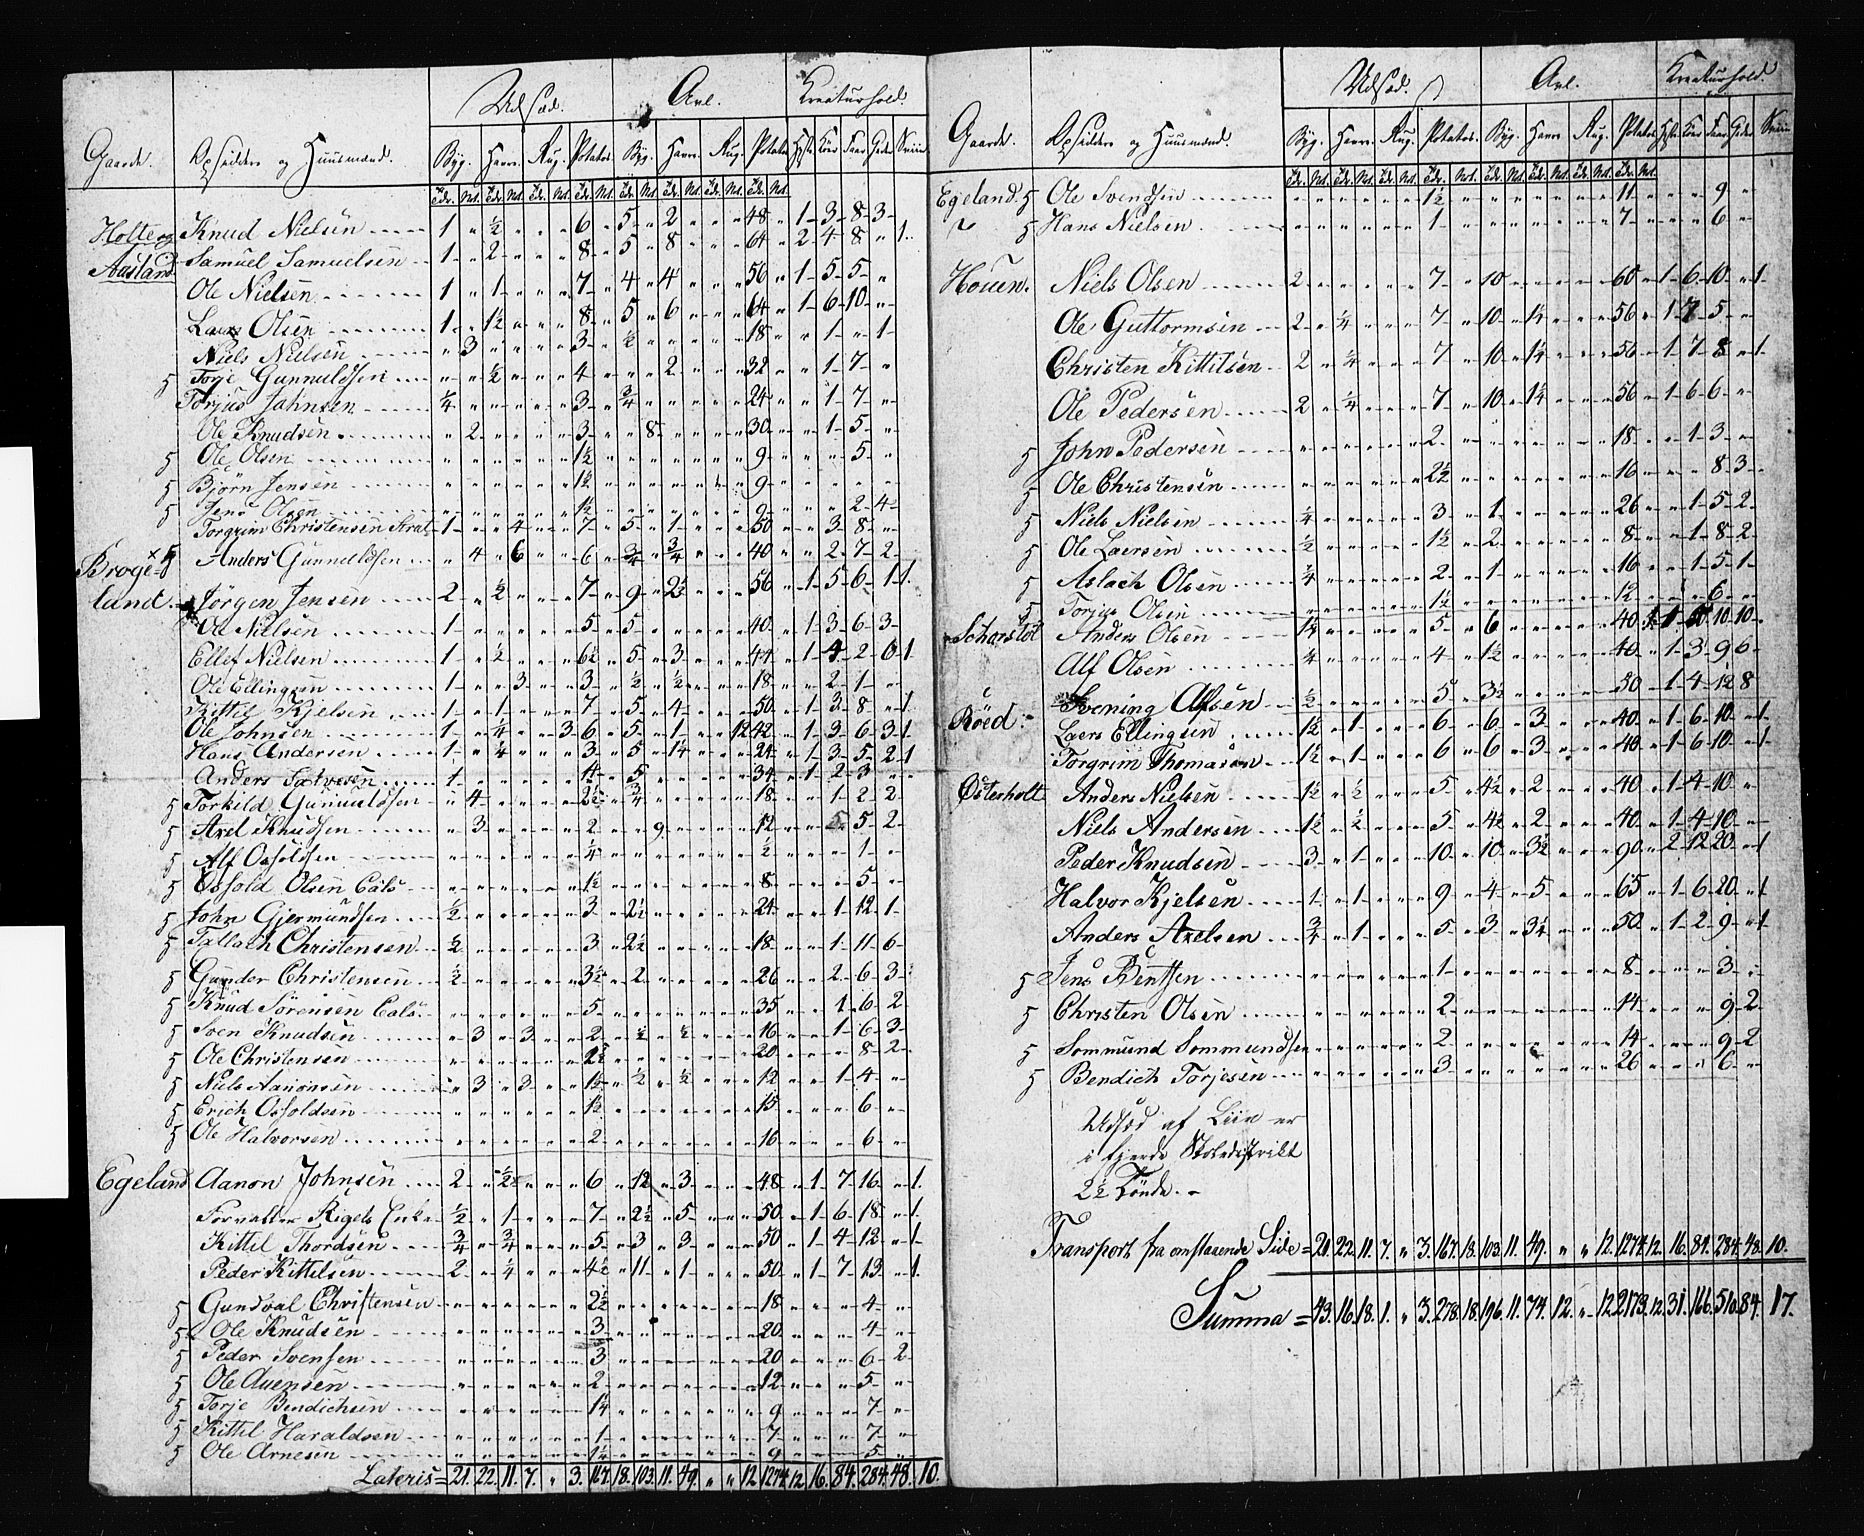 Udsæd. Avl. Kreaturhold.
Gaarde. Opsiddere og Huusmænd. Byg. Havre. Rug. Potatos. Byg. Havre. Rug. Potatos. Heste Kiör Faar Geder Sviin
Holte og Knud Nielsen 1 " ½ " " " 6 " 5 " 2 " " " 48 " 1 3 8 3
Aasland Samuel Samuelsen 1 " 2 " " " 8 " 5 " 8 " " " 64 " 2 4 8 " 1
Ole Nielsen 1 " 1 " " " 7 " 4 " 4 " " " 56 " 1 5 5 "
Laers Olsen 1 " 1½ " " " 8 " 5 " 6 " " " 64 " 1 6 10 "
Niels Nielsen " 3 " " " " 3 " ½ " " " " " 18 " " 1 " 1
Torje Gunnuldsen " " ½ " " " 4 " " " 2 " " " 32 " " 1 7 "
Torjus Jahnsen ¼ " " " " " 3 " ¾ " " " " " 24 " " 1 7 "
Ole Knudsen " 2 " " " " 3 " " 8 " " " " 30 " " 1 5 "
5 Ole Olsen 1½ 9 5
5 Björn Jensen 1½ 9
5 Jens Olsen 1½ 9 2 4
Torgrim Christensen Strat 1 " " 4 " " 7 " 5 " 1 " " " 50 " " 3 8 "
5 Anders Gunnuldsen " 4 " 6 " " 6 " ¾ " ¾ " " " 40 " " 2 7 2
Broge-
land. Jörgen Jensen 2 " ½ " " " 7 " 9 " 2½ " " " 56 " 1 5 6 1 1
Ole Nielsen 1 " " " " " 5 " 5 " " " " " 40 " 1 3 6 3
Ellef Nielsen 1 " ½ " " " 6½ " 5 " 3 " " " 44 " 1 4 2 0 1
Ole Ellingsen 1 " " 3 " " 3 " ½ " ½ " " " 18 " " 2 1 "
Kittil Kjelsen 1 " 1 " " " 7 " 5 " 4 " " " 50 " 1 3 8 " 1
Ole Johnsen 1 " ¼ " " 3 6 " 5 " 1 " " 12 42 " 1 3 6 3 1
Hans Andersen 1 " ¼ " " " 3 " 5 " 1¼ " " " 24 " 1 3 5 2 1
5 Torkild Gunnuldsen " 4 " " " " 2½ " ¾ " " " " " 18 " " 1 2 2
5 Axel Knudsen " 3 " " " " 2 " " 9 " " " " 12 " " 5 5 2
5 Alf Osfoldsen ¼ ½ 1
5 Osfold Olsen Eals 1½ 8 5
5 John Gjermundsen ½ 3 2½ 24 1 12 1
5 Tallach Christensen ½ 3 2½ 18 1 11 6
5 Gunder Christensen ½ 3½ 2 26 2 6 3
5 Knud Sörensen Eals 5 35 1 6 2
5 Sven Knudsen 3 3 2 ½ ½ 16 1 6 3
5 Ole Christensen 2½ 20 8 2
5 Niels Aanonsen 3 3 1½ ½ ½ 12 1 4
5 Erich Osfoldsen 1½ 15 6
5 Ole Halvorsen 2 16 6
Egeland Aanon Johnsen 2 6 12 3 48 1 7 16 1
Forvalter Rigels Enke ½ 1 7 2½ 5 50 1 6 18 1
Kittil Thordsen ¾ ¾ 5 3 3 50 1 4 12 1
Peder Kittelsen 2 ¼ 4½ 11 1 50 1 7 13 1
5 Gundval Christensen 2½ 18 4
5 Ole Knudsen 3 20 4
5 Peder Svensen 3 20 6 2
5 Ole Auensen 2 12 5
5 Torje Bendichsen 1¼ 9 7
5 Kittil Haraldsen 1 7 7
5 Ole Arnesen 1¼ 9 5
Lateris = 21. 22. 11. 7. " 3. 167. 18. 103. 11. 49. " " 12 1274. 12 16. 84. 284. 48. 10.
Udsæd. Avl. Kreaturhold.
Gaarde. Opsiddere og Huusmænd. Byg. Havre. Rug. Potatos. Byg. Havre. Rug. Potatos. Heste Kiör Faar Geder Sviin
Egeland 5 Ole Svendsen 1½ 11 9
" 5 Hans Nielsen 1 7 6
Houen. Niels Olsen 2 7 10 60 1 6 10 1
Ole Guttormsen 2 ¼ 7 10 1¼ 56 1 7 5
Christen Kittilsen 2 ¼ 7 10 1¼ 56 1 7 8 1
Ole Pedersen 2 ¼ 7 10 1¼ 56 1 6 6
5 John Pedersen 2 18 1 3
5 Ole Christensen 2½ 16 8 3
5 Niels Nielsen ¼ 3 1 26 1 5 2
5 Ole Laersen ½ 1½ 2 8 1 8 2
5 Aslach Olsen ¼ 2 1 16 1 5 1
5 Torjus Olsen 1½ 12 6
Scharstöl Anders Olsen 1¼ 5 6 40 10 10
Alf Olsen ¼ 4 1½ 40 1 3 9 6
Svening Alfsen ½ 5 3½ 50 1 4 12 8
Röed. Laers Ellingsen 1½ 1 6 6 3 40 1 6 10 1
Torgrim Thomasen 1½ 1 6 6 3 40 1 6 10 1
Österholt Anders Nielsen 1½ ½ 5 4½ 2 40 1 4 10
Niels Andersen 1½ ½ 5 4½ 2 40 1 4 10
Peder Knudsen 3 1 10 10 3½ 90 2 12 20 1
Halvor Kjelsen 1 1 9 4 5 65 1 6 20 1
Anders Axelsen ¾ 1 5 3 3¼ 50 1 2 9 1
5 Jens Bentsen 1 8 3
5 Christen Olsen 2 14 9 2
5 Sommund Sommundsen 2 14 9 2
5 Bendich Torjesen 3 26 6
Udsæd af Liin er
i fjerde Skoledistrikt
2½ Tönde.
Transport fra omstaaende Side = 21. 22. 11. 7. " 3. 167. 18. 103. 11. 49. " " 12. 1274. 12. 16. 84. 284. 48. 10.
Summa = 43. 16. 18. 1. " 3. 278. 18. 196. 11. 74. 12. " 12 2173. 12. 31. 166. 510. 84. 17.